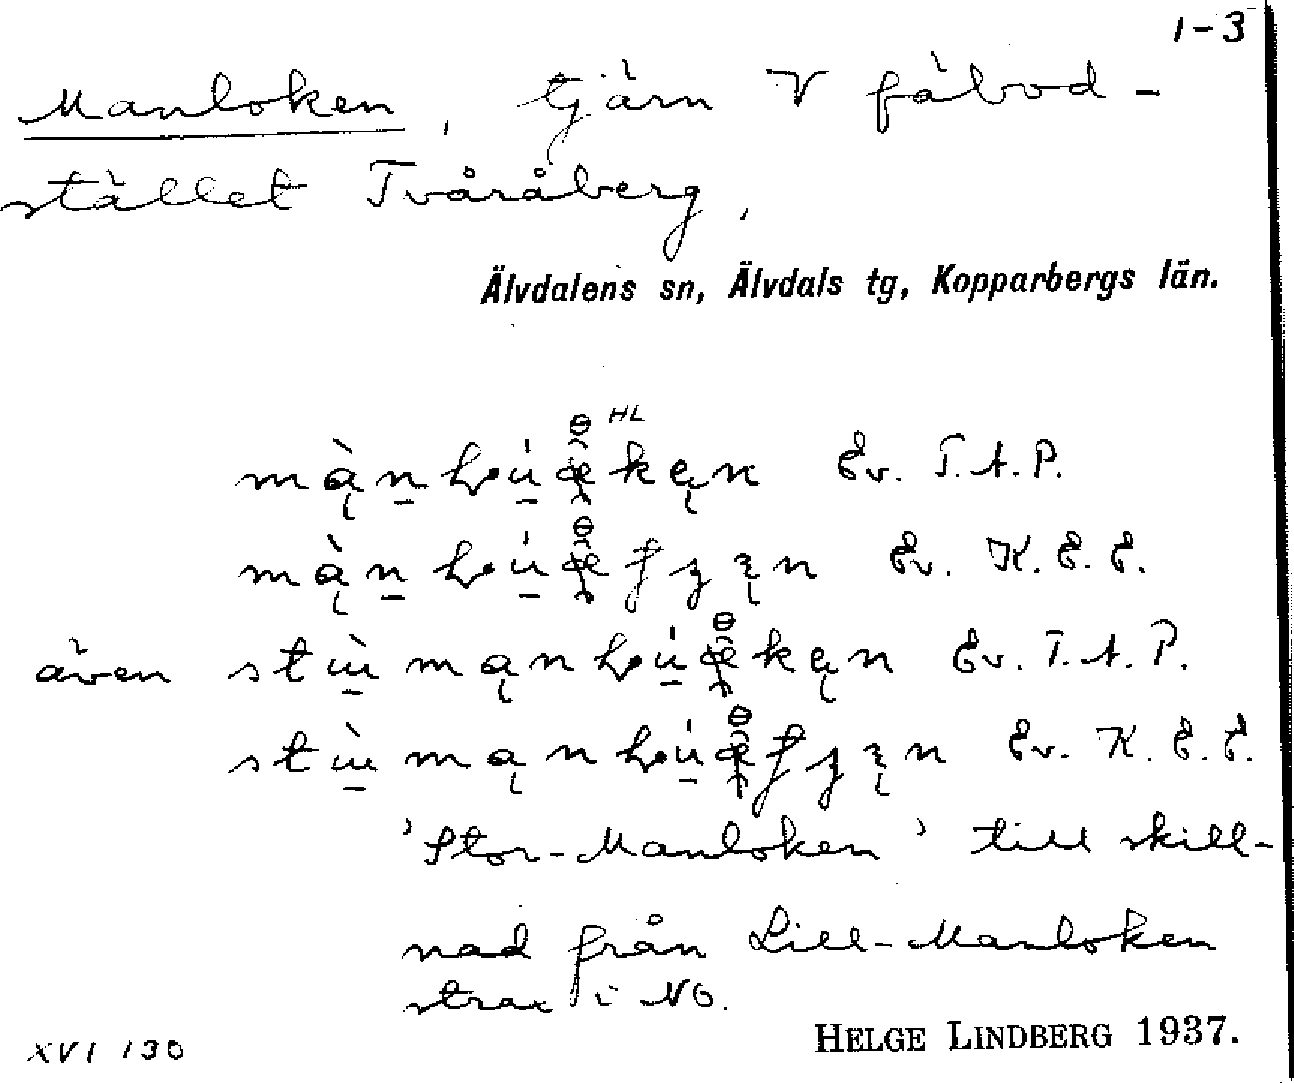 1-3
Manloken, tjärn V fäbod-
stället Tvåråberg,
Älvdalens sn, Älvdals tg, Kopparbergs län.
HL
Ev. T.A.P.
Ev. K.E.E.
även Ev. T.A.P.
Ev. K.E.E.
'Stor-Manloken' till skill-
nad från Lill-Manloken
strax i NO.
XVI 130 HELGE LINDBERG 1937.